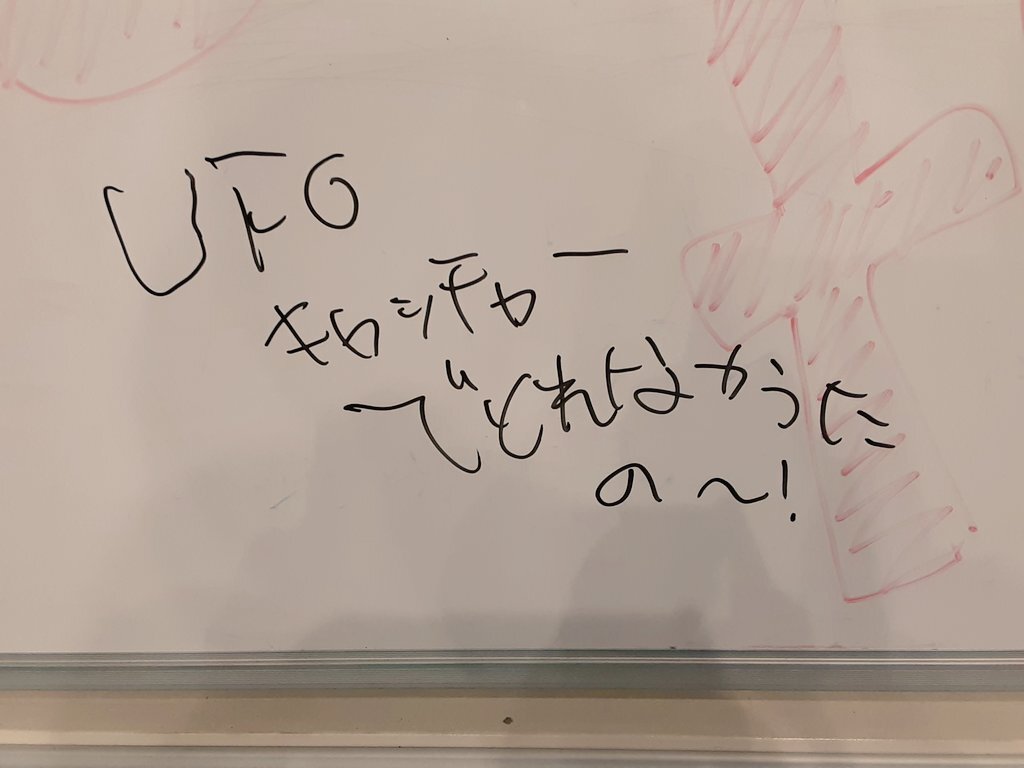 UFO
キャッチャー
でとれなかった
の〜!